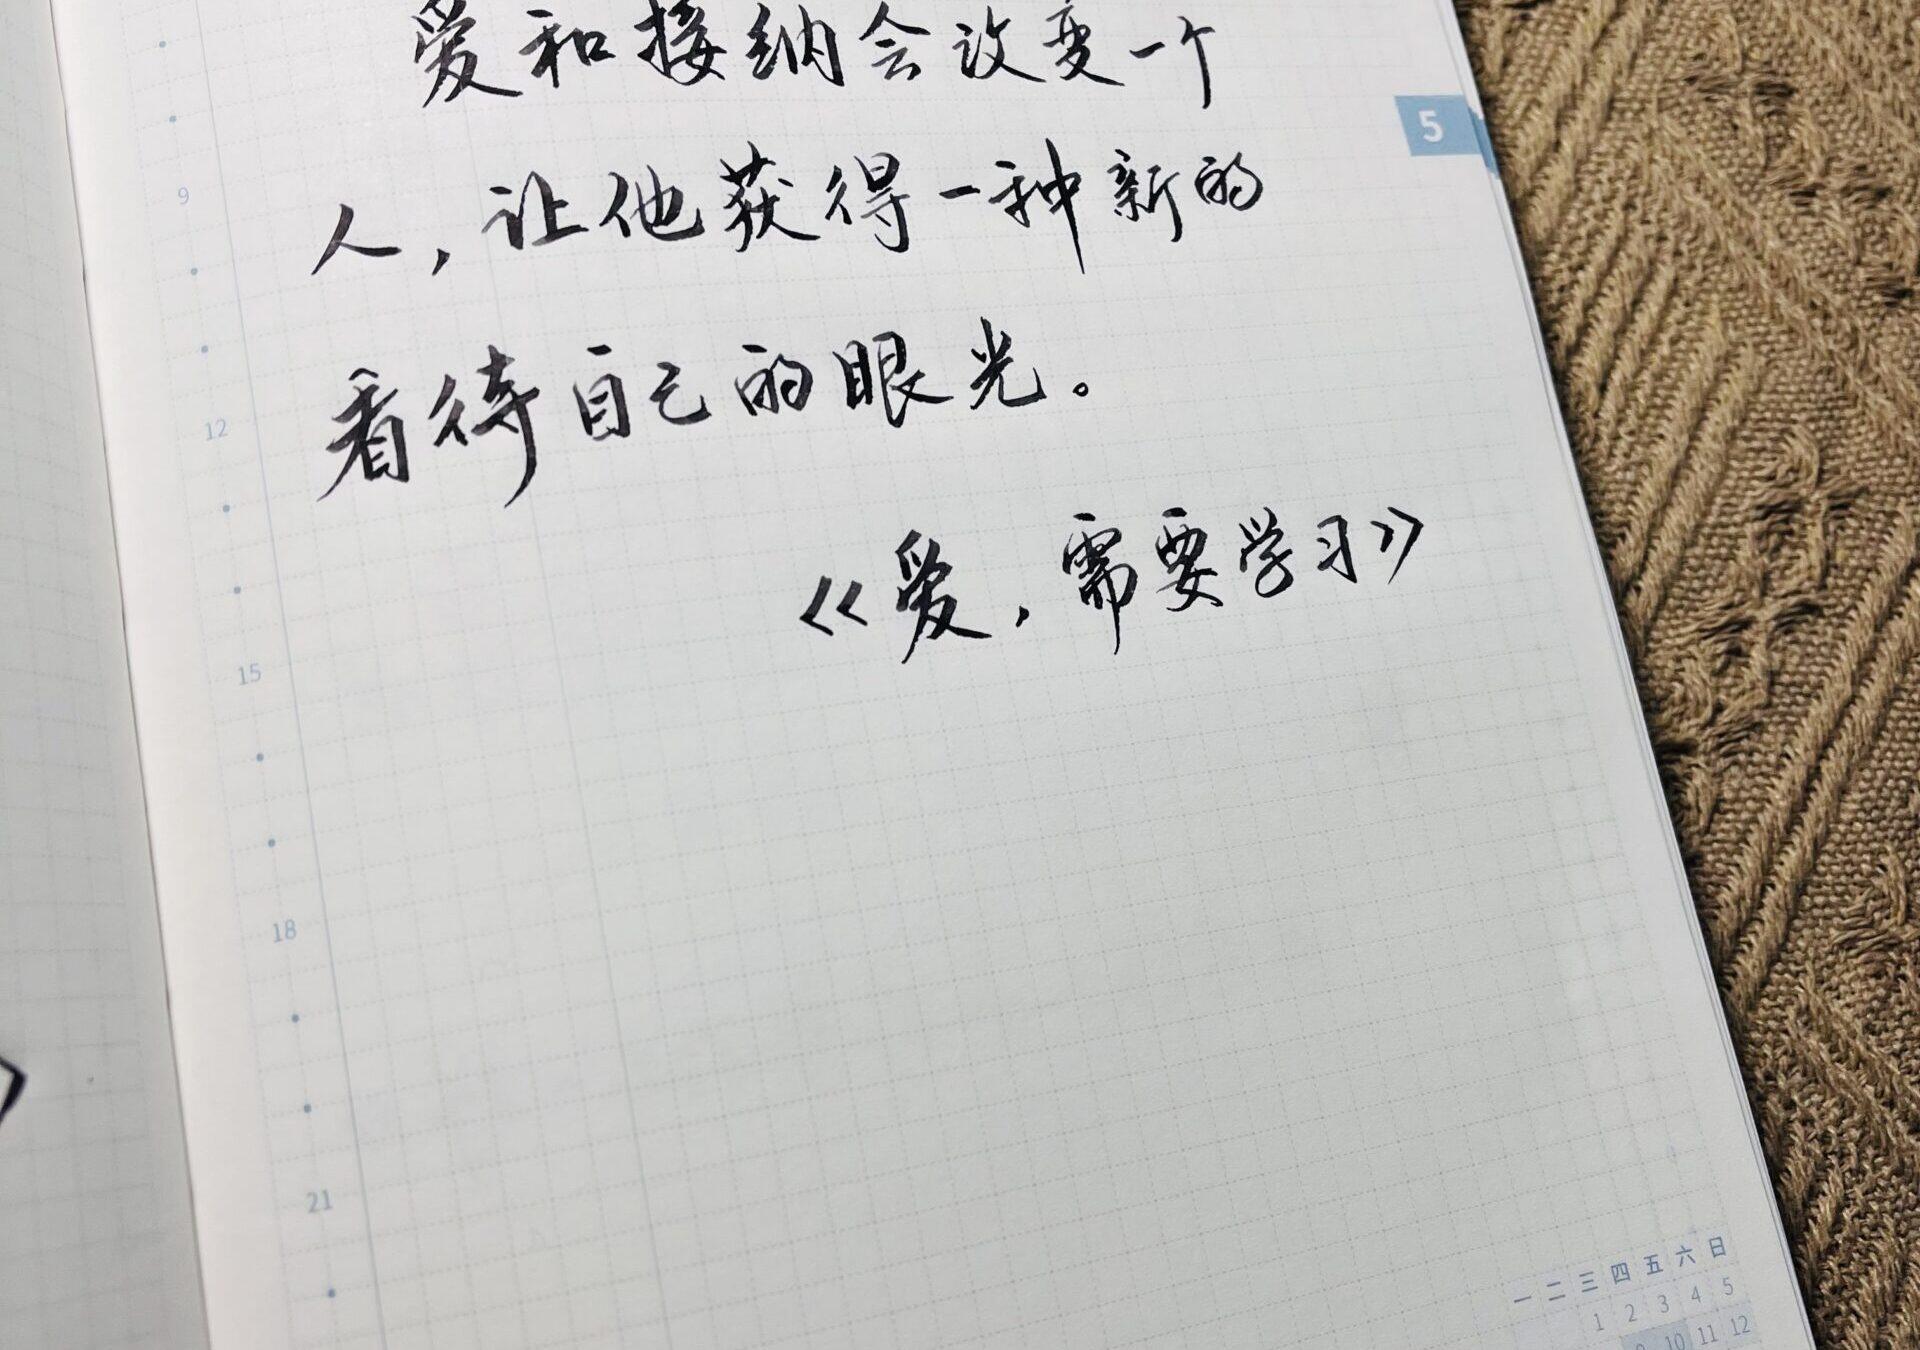 爱和接纳会改变一个
人，让他获得一种新的
看待自己的眼光。
《爱，需要学习》
5
9
12
15
18
21
一 二 三 四 五 六 日
1 2 3 4 5
10 11 12